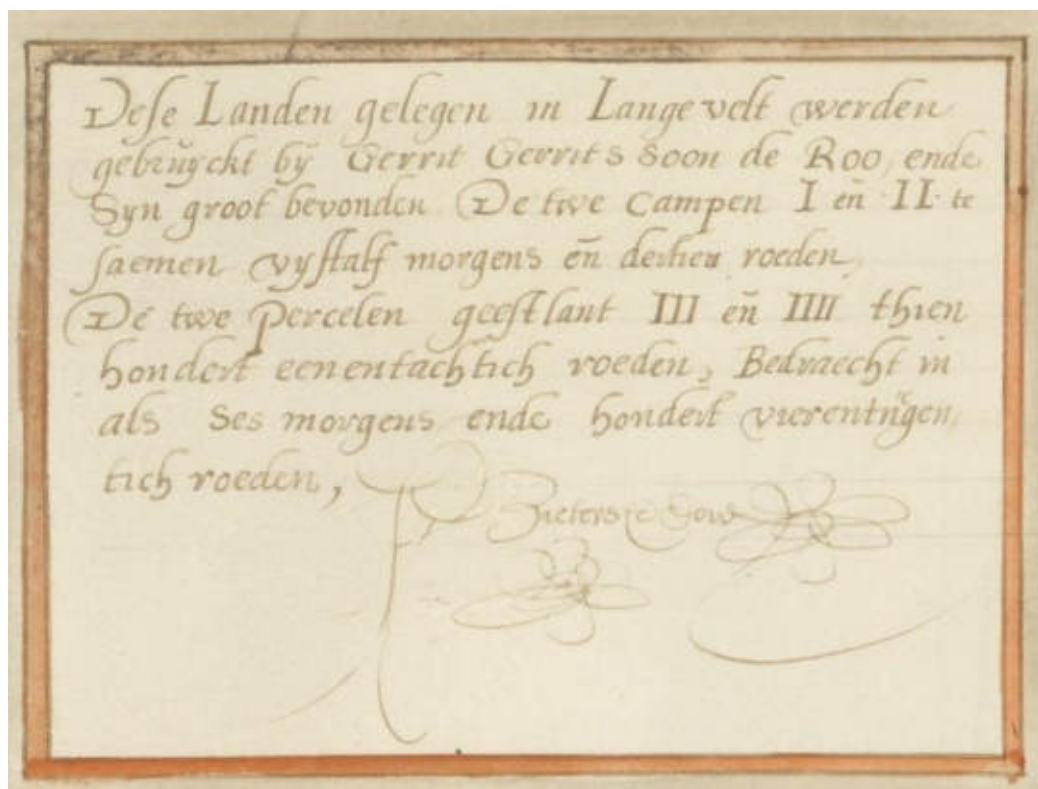 Dese Landen gelegen in Langevelt werden
gebruyckt by Gerrit Gerrits soon de Roo, ende
Syn groot bevonden De twe Campen I eñ II te
saemen vystalf morgens eñ dertien roeden,
De twe percelen geestlant III eñ IIII thien
hondert eenentachtich roeden, Bedraecht in
als ses morgens ende hondert vierentnegen
tich roeden,
Pieters Dou